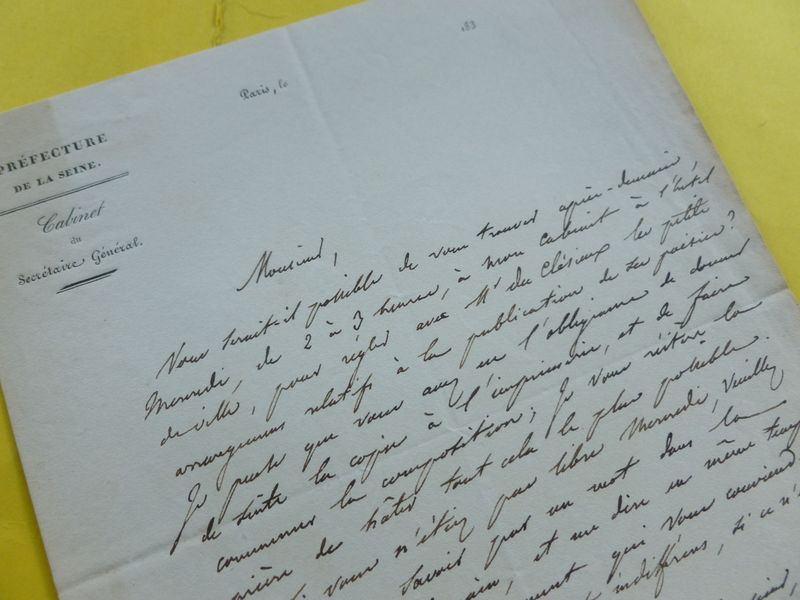 Paris, le
183
PRÉFECTURE
DE LA SEINE.
Cabinet
du
Secrétaire Général.
Monsieur,
Vous serait-il possible de vous trouver après-demain
Mercredi, de 2 à 3 heures, à mon cabinet à l'hôtel
de ville, pour régler avec Mr du Clésieux les petits
arrangemens relatifs à la publication de ses poésies?
Je pense que vous avez eu l'obligeance de donner
de suite la copie à l'imprimerie, et de faire
commencer la composition; Je vous réitère la
prière de hâter tout cela le plus possible.
Si vous n'étiez pas libre Mercredi, veuillez
savoir par un mot dans la
et me dire en même temps
qui vous conviend
indifférent, si ce n'